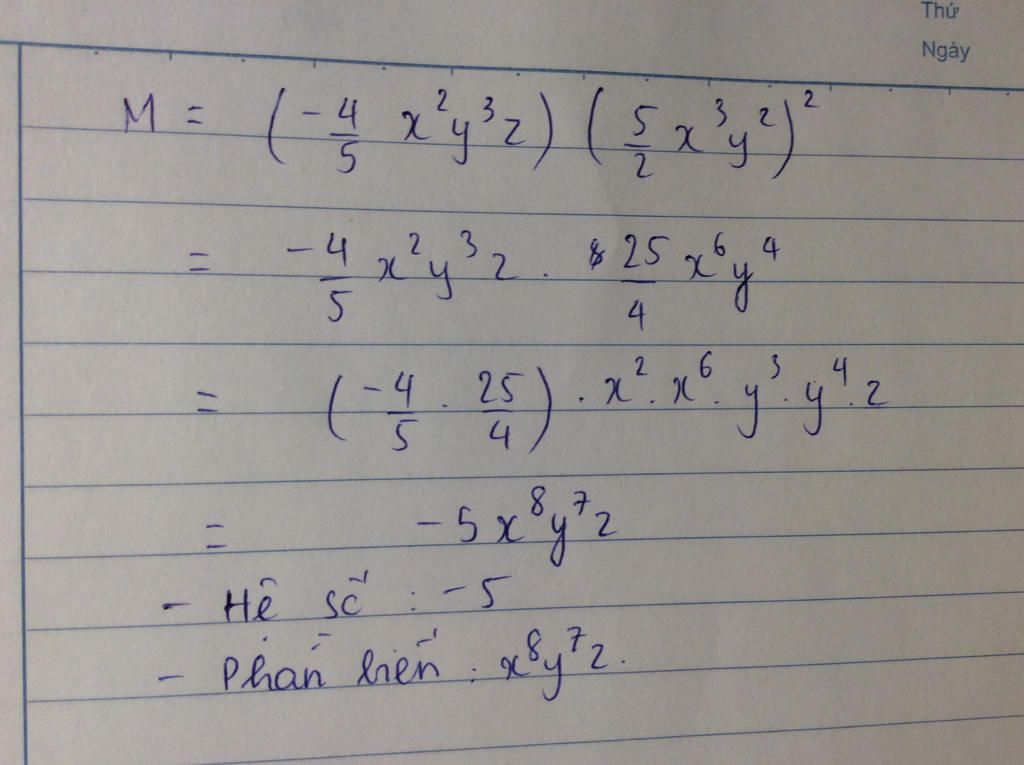 Thứ
Ngày
M = (-4/5 x²y³z) (5/2 x³y²)²
= -4/5 x²y³z . 25/4 x⁶y⁴
= (-4/5 . 25/4) . x² . x⁶ . y³ . y⁴ . z
= -5x⁸y⁷z
- Hệ số : -5
- Phần biến : x⁸y⁷z.